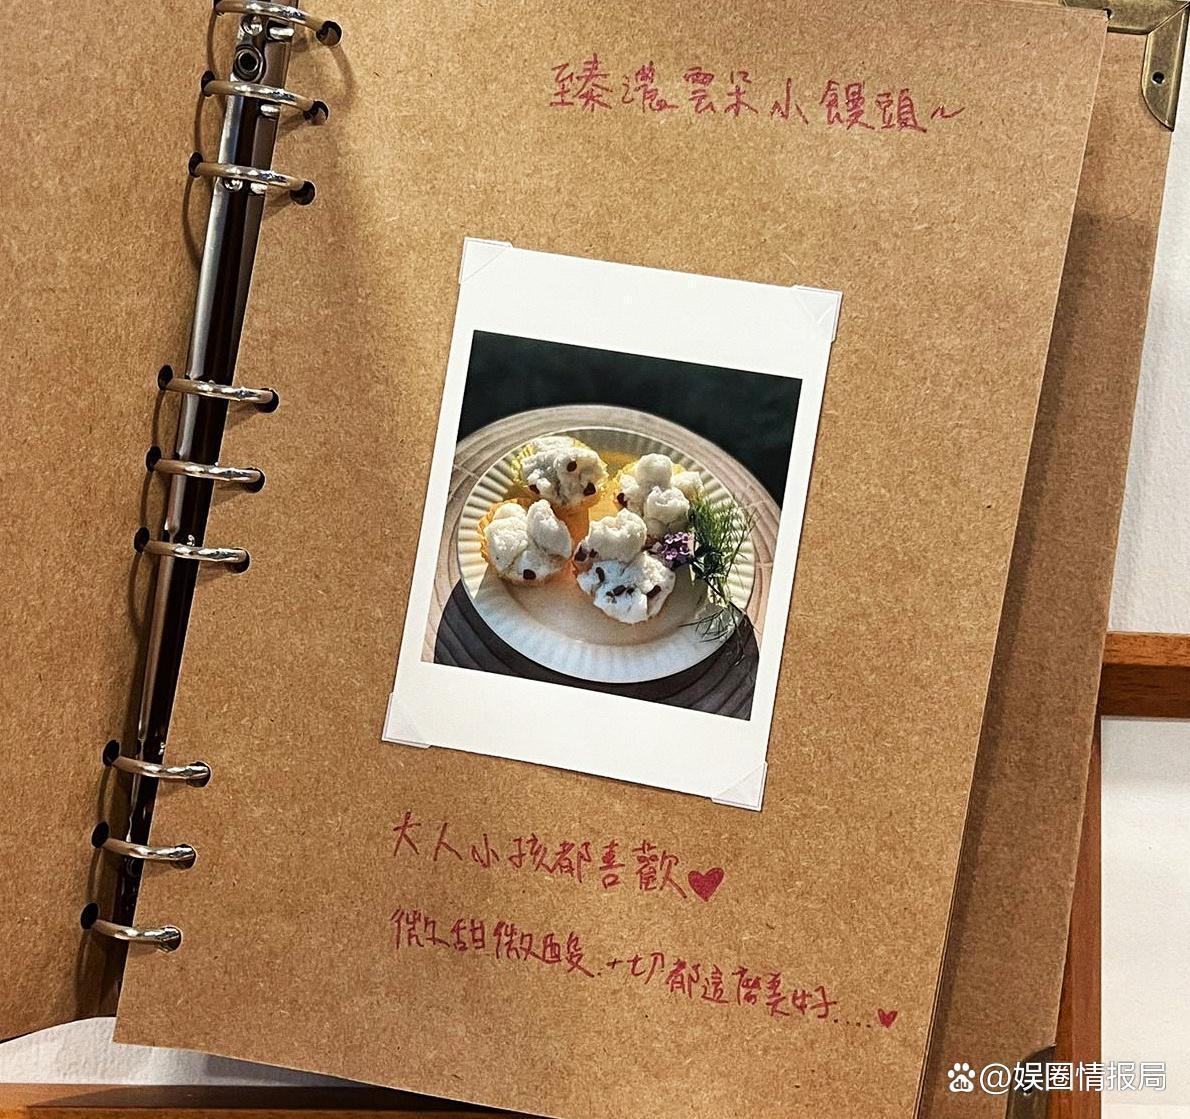 臻濃雲朵小饅頭~
大人小孩都喜歡♥
微甜微酸.一切都這麼美好....♥
@娱圈情报局